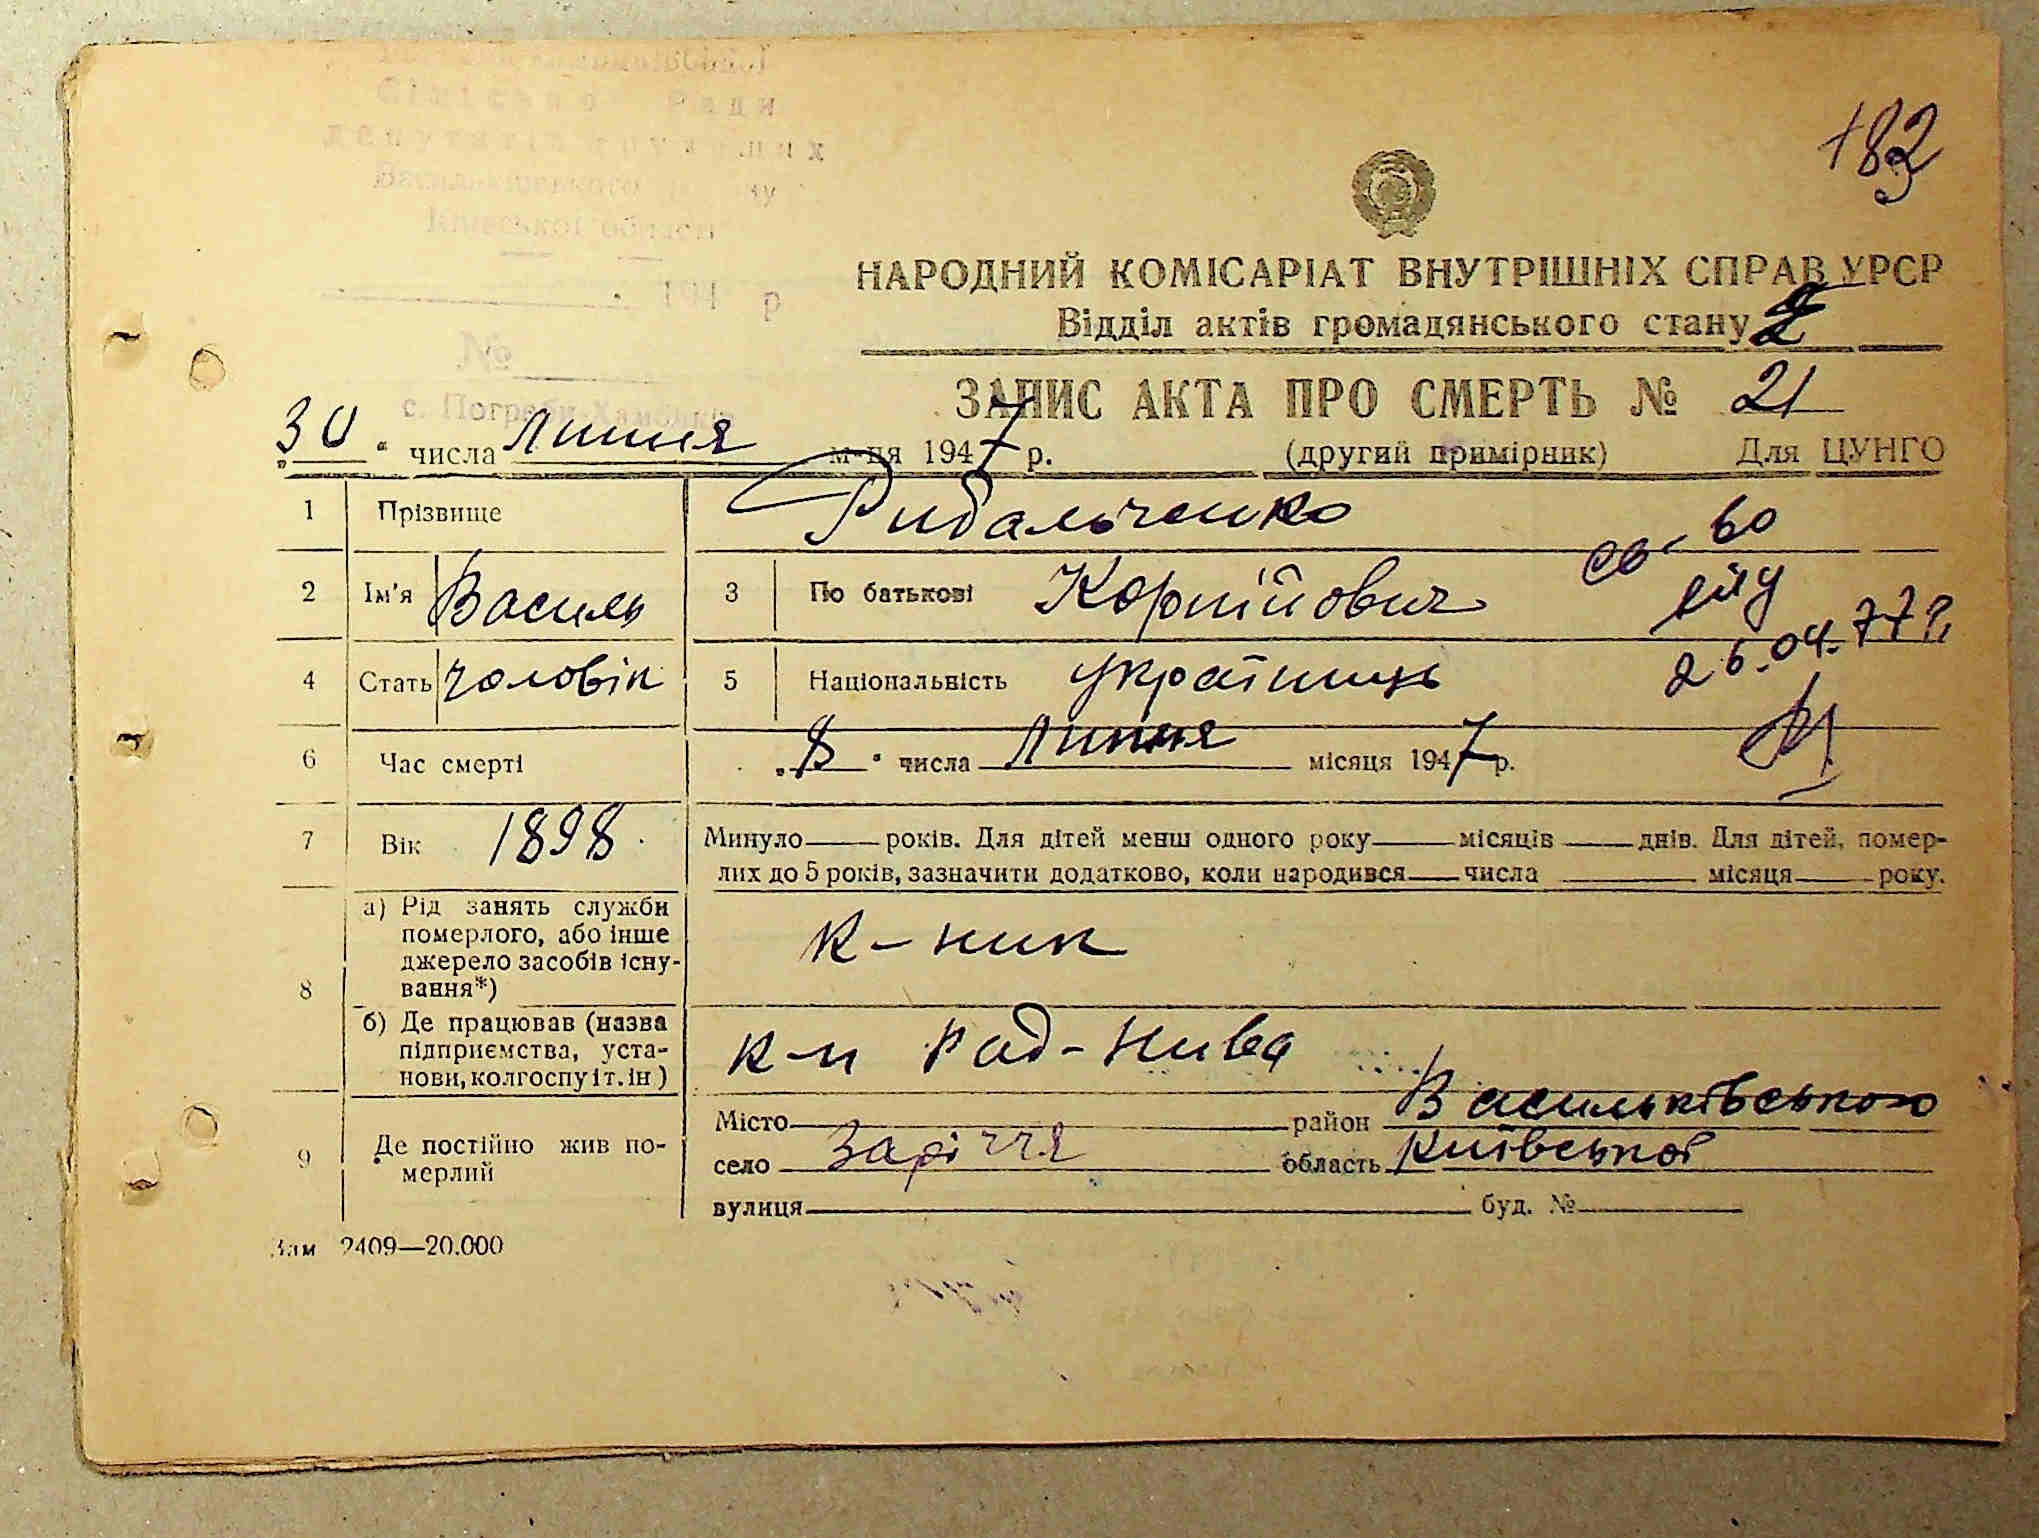 Сільської Ради
депутатів трудящих
Васильківського району
Київської області
194 р
№
с. Погреби-Хамбіків
183
НАРОДНИЙ КОМІСАРІАТ ВНУТРІШНІХ СПРАВ УРСР
Відділ актів громадянського стану 2
ЗАПИС АКТА ПРО СМЕРТЬ № 21
„30“ числа Липня м-ця 1947 р. (другий примірник) Для ЦУНГО
1 Прізвище Рибальченко
св-во
2 Ім'я Василь 3 По батькові Корнійович
26.04.77 г.
4 Стать чоловік 5 Національність українець
6 Час смерті „8“ числа Липня місяця 1947 р.
7 Вік 1898. Минуло років. Для дітей менш одного року місяців днів. Для дітей, помер-
лих до 5 років, зазначити додатково, коли народився числа місяця року.
8 а) Рід занять служби
померлого, або інше
джерело засобів існу-
вання*)
к-ник
б) Де працював (назва
підприємства, уста-
нови, колгоспу і т. ін )
к-п Рад-Нива
9 Де постійно жив по-
мерлий
Місто район Васильківського
село Заріччя область Київської
вулиця буд. №
Зам 2409—20.000